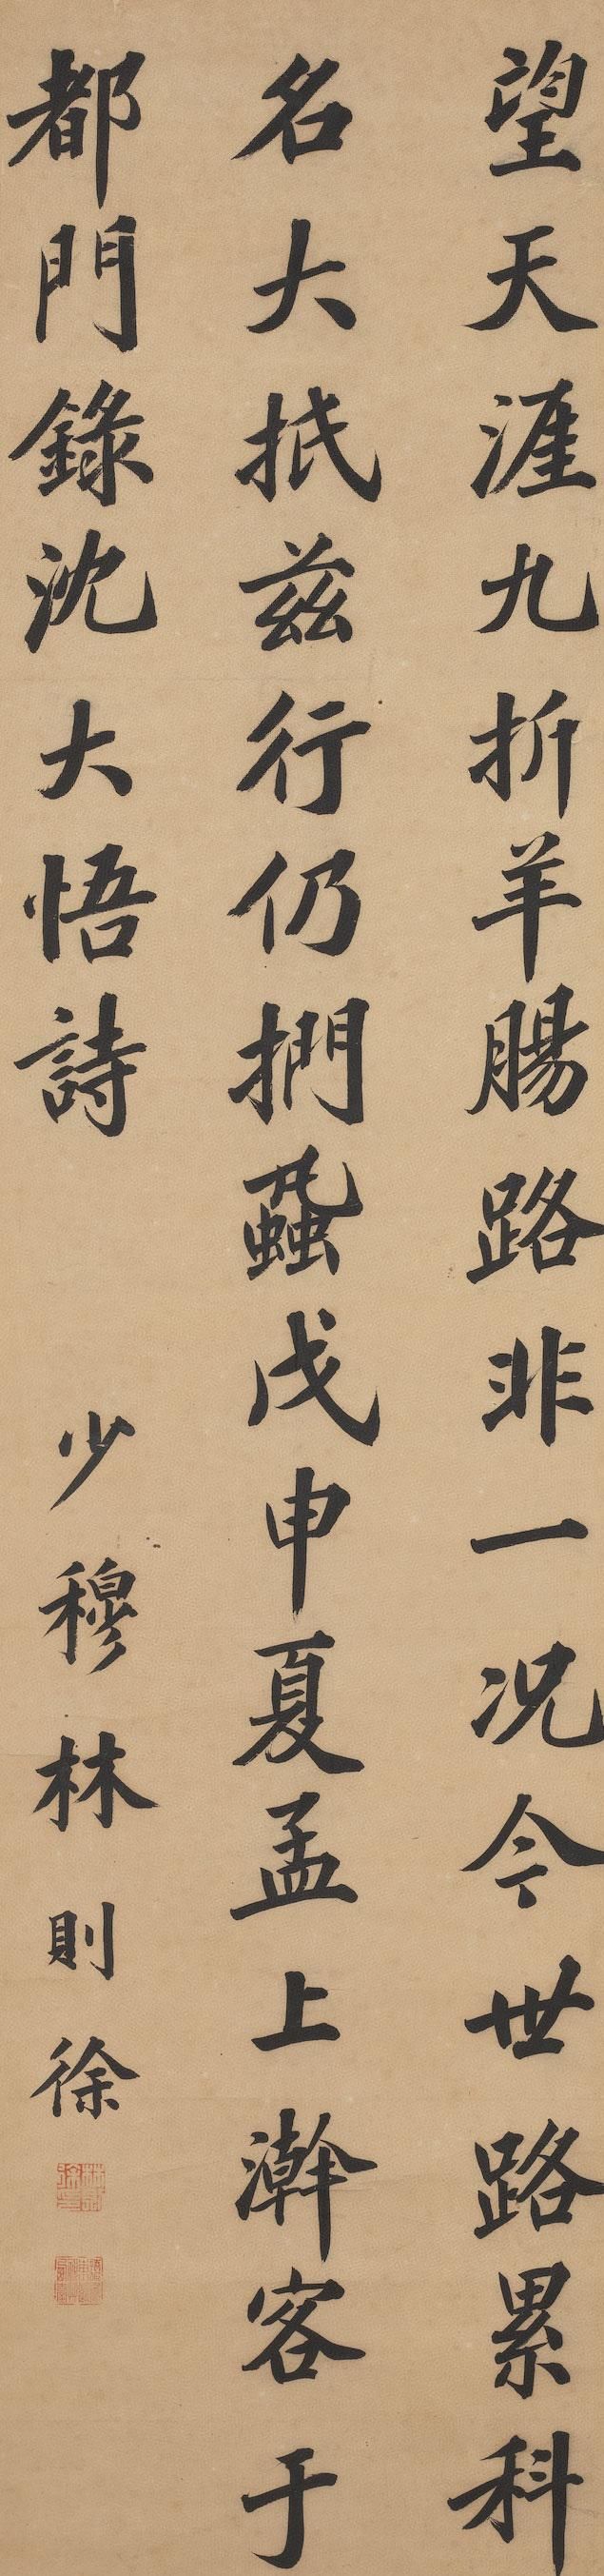 望天涯九折羊腸路非一况今世路累科
名大抵兹行仍捫蝨戊申夏孟上澣客于
都門錄沈大悟詩 少穆林則徐